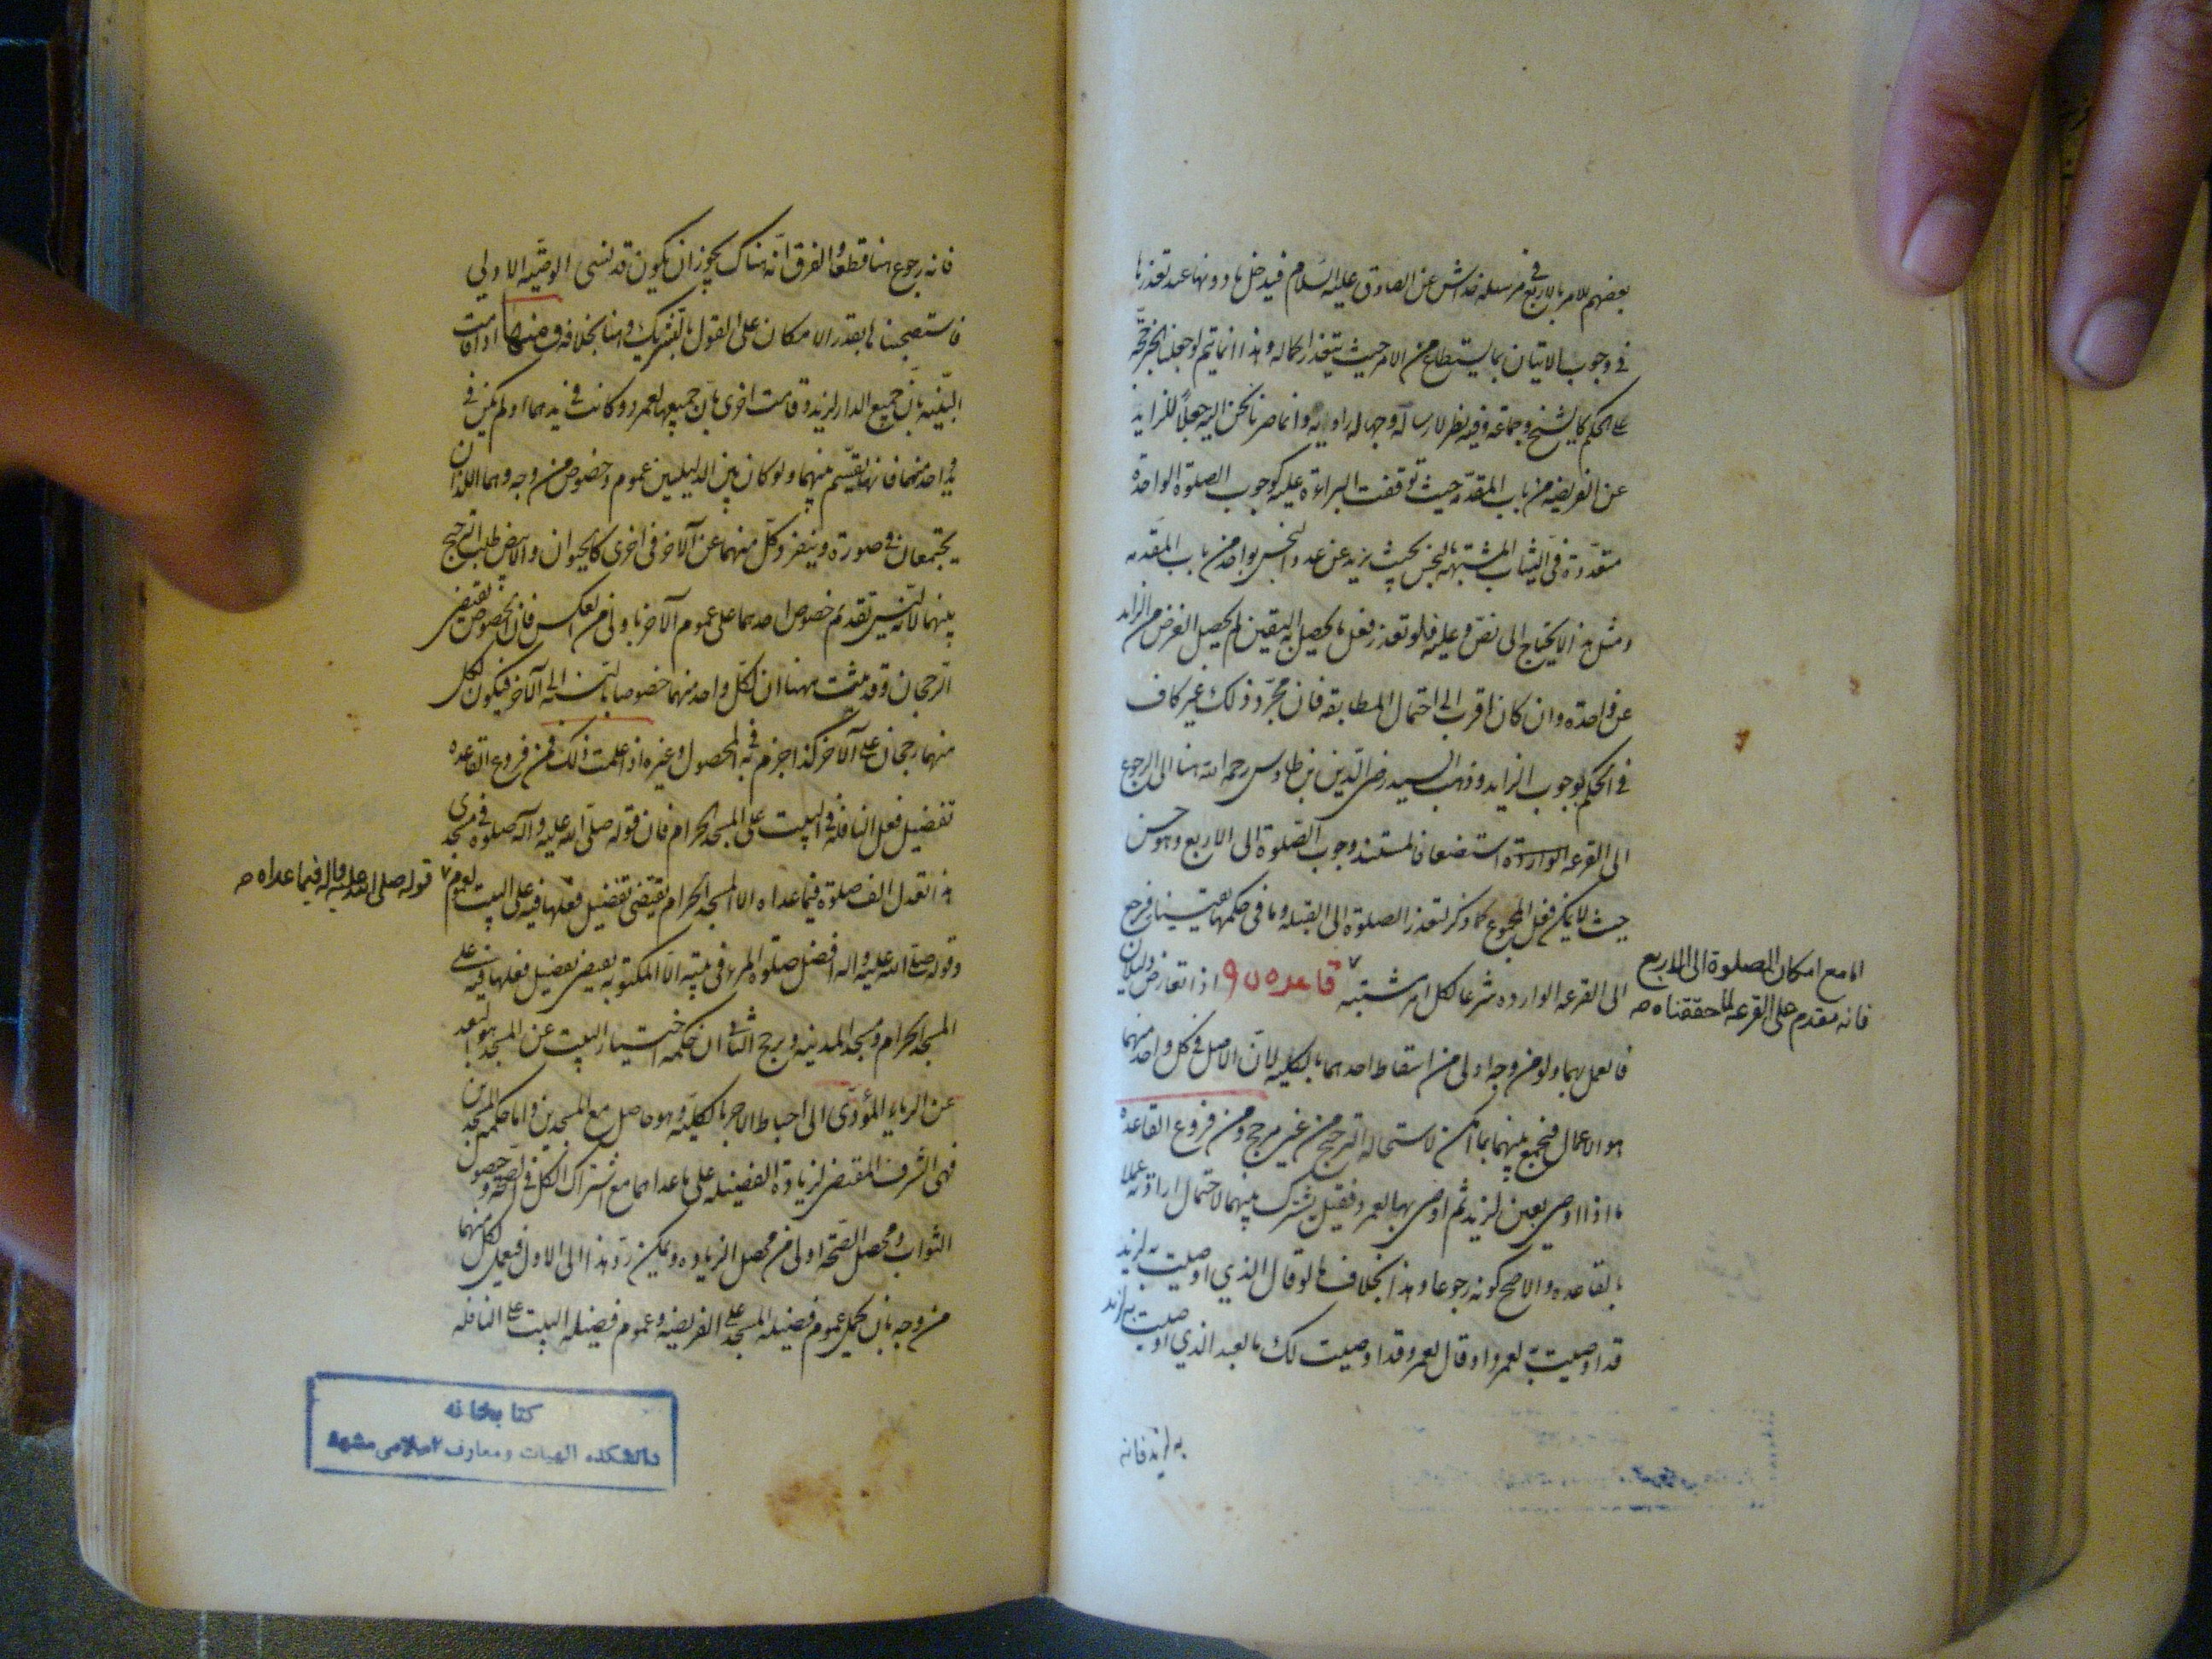 بعضهم للامر بالاربع في مرسلة خداش عن الصادق عليه السلام فيدخل ما دونها عند تعذرها
في وجوب الاتيان بما يستطاع من الامر حيث يتعذر اكماله وهذا انما يتم لو جعلنا الخبر حجة
على الحكم كالشيخ وجماعة وفيه نظر لارساله وجهالة راويه وانما صرنا نحن اليه جعلا للزايد
عن الفريضه من باب المقدمة حيث توقفت البراءة عليه كوجوب الصلوة الواحدة
متعددة في الثياب المشتبهة بالنجس بحيث يزيد عن عدد النجس بواحد من باب المقدمه
ومثل هذا لا يحتاج الى نص وعليه فلو تعذر فعل ما يحصل به اليقين لم يحصل الغرض من الزايد
عن واحدة وان كان اقرب الى احتمال المطابقه فان مجرد ذلك غير كاف
في الحكم بوجوب الزايد وذهب السيد رضي الدين بن طاوس رحمه الله هنا الى الرجوع
الى القرعه الواردة استضعافا لمستند وجوب الصلوة الى الاربع وهو حسن
حيث لا يمكن فعل المجموع كما ذكر لتعذر الصلوة الى القبلة وما في حكمها يقينا فيرجع
الى القرعه الوارده شرعا لكل امر مشتبه قاعده ٩٥ اذا تعارض دليلان
الا مع امكان الصلوة الى الاربع
فانه مقدم على القرعه لما حققناه صح
فالعمل بهما ولو من وجه اولى من اسقاط احدهما بالكلية لان الاصل في كل واحد منهما
هو الاعمال فيجمع بينهما بما امكن لاستحالة الترجيح من غير مرجح ومن فروع القاعدة
ما اذا اوصى بعين لزيد ثم اوصى بها لعمرو فقيل يشرك بينهما لاحتمال ارادته عملا
بالقاعده والاصح كونه رجوعا وهذا بخلاف ما لو قال الذي اوصيت به لزيد
قد اوصيت به لعمرو او قال لعمرو قد اوصيت لك بالعبد الذي اوصيت به لزيد
به لزيد فانه
فانه رجوع هنا قطعا والفرق انه هناك يجوز ان يكون قد نسى الوصية الاولى
فاستصحبناها بقدر الامكان على القول بالتشريك وهنا بخلافه ومنها اذا قامت
البينة بان جميع الدار لزيد وقامت اخرى بان جميعها لعمرو وكانت في يدهما او لم يكن في
يد واحد منهما فانها تقسم بينهما ولو كان بين الدليلين عموم وخصوص من وجه وهما اللذان
يجتمعان في صورة وينفرد كل منهما عن الآخر في اخرى كالحيوان والابيض طلب الترجيح
بينهما لانه ليس تقديم خصوص احدهما على عموم الآخر باولى من العكس فان الخصوص يقتضي
الرجحان وقد ثبت ههنا ان لكل واحد منهما خصوصا بالنسبة الى الآخر فيكون لكل
منهما رجحان على الآخر كذا جزم به في المحصول وغيره اذا علمت ذلك فمن فروع القاعده
تفضيل فعل النافلة في البيت على المسجد الحرام فان قوله صلى الله عليه وآله صلوة في مسجدى
هذا تعدل الف صلوة فيما عداه الا المسجد الحرام يقتضى تفضيل فعلها فيه على البيت لعموم
قوله صلى الله عليه واله فيما عداه صح
وقوله صلى الله عليه واله افضل صلوة المرء في بيته الا المكتوبة يقتضي تفضيل فعلها فيه على
المسجد الحرام ومسجد المدينة ويرجح الثانى ان حكمة اختيار البيت عن المسجد هو البعد
عن الرياء المؤدى الى احباط الاجر بالكلية وهو حاصل مع المسجدين واما حكمة المسجدين
فهى الشرف المقتضى لزيادة الفضيله على ما عداهما مع اشتراك الكل في الصحة وحصول
الثواب ومحصل الصحة اولى من محصل الزياده ويمكن رد هذا الى الاول فيعمل لكل منهما
من وجه بان يحمل عموم فضيله المسجد على الفريضه وعموم فضيله البيت على النافله
كتابخانه
دانشكده الهيات ومعارف اسلامى مشهد